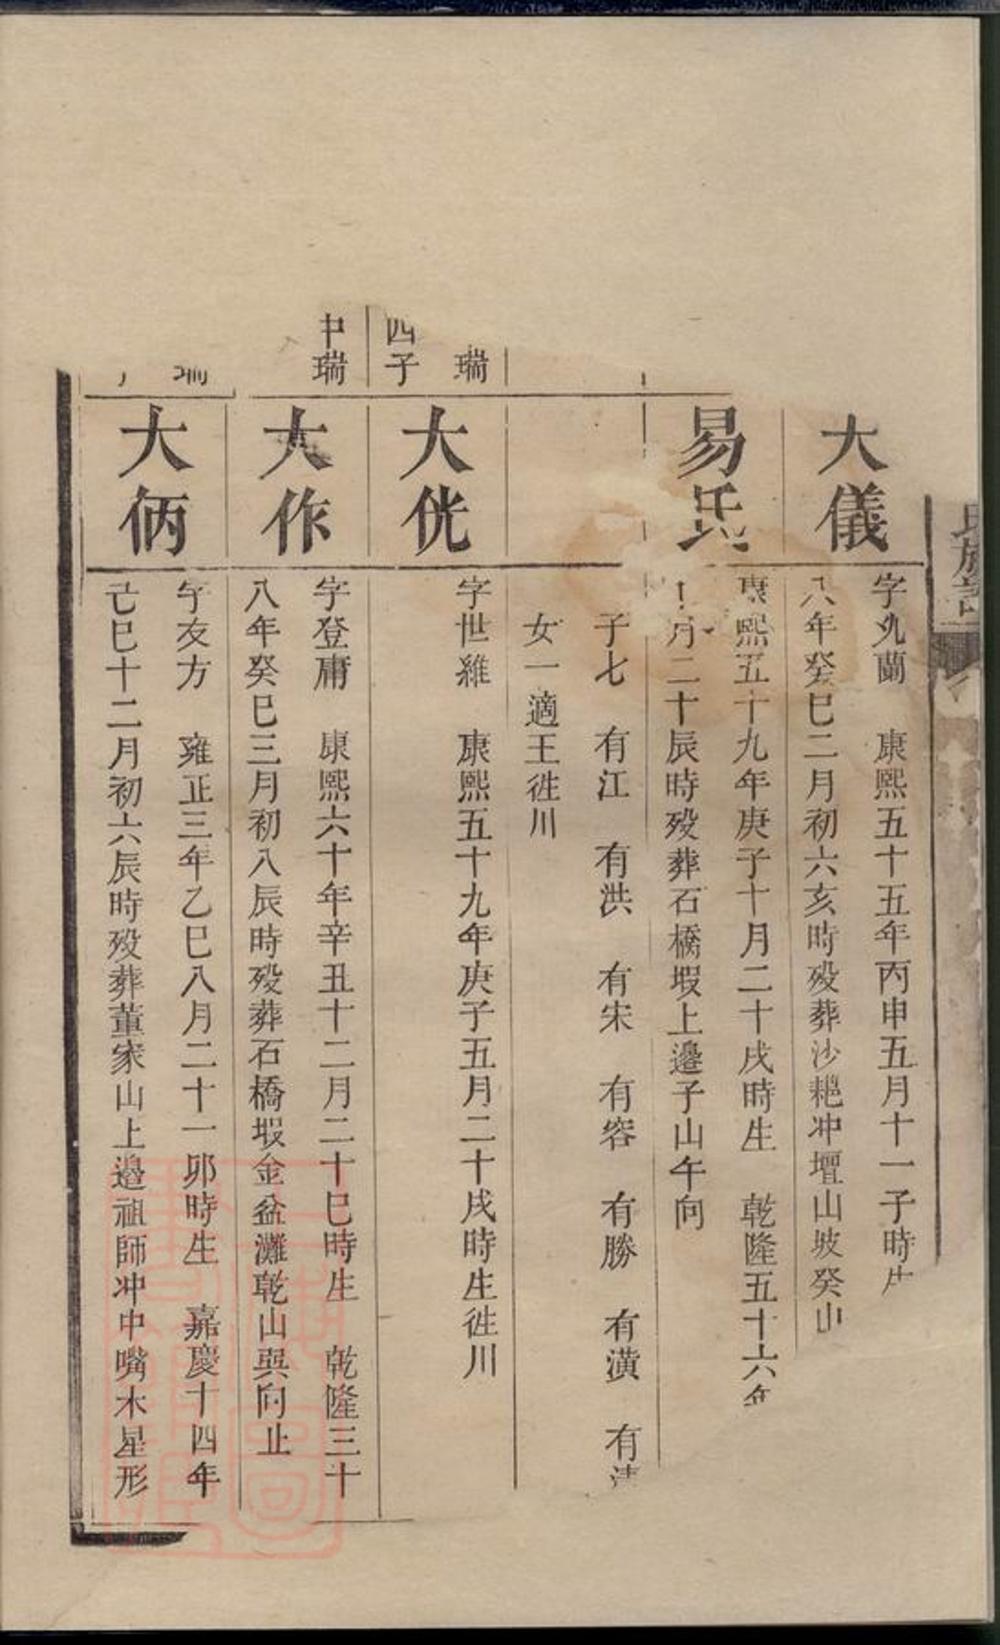 氏族
大儀
字㐆蘭　康熙五十五年丙申五月十一子時生
八年癸巳二月初六亥時歿葬沙耙冲壇山坡癸山
易氏
康熙五十九年庚子十月二十戌時生　乾隆五十六年
月二十辰時歿葬石橋塅上邉子山午向
子七　有江　有洪　有宋　有容　有勝　有潢　有清
女一適王徃川
瑞
四子
大侊
字世維　康熙五十九年庚子五月二十戌時生徃川
中瑞
大作
字登庸　康熙六十年辛丑十二月二十巳時生　乾隆三十
八年癸巳三月初八辰時歿葬石橋塅金盆灘乾山巽向止
瑞
大㑂
字友方　雍正三年乙巳八月二十一卯時生　嘉慶十四年
己巳十二月初六辰時歿葬董家山上邉祖師冲中嘴木星形